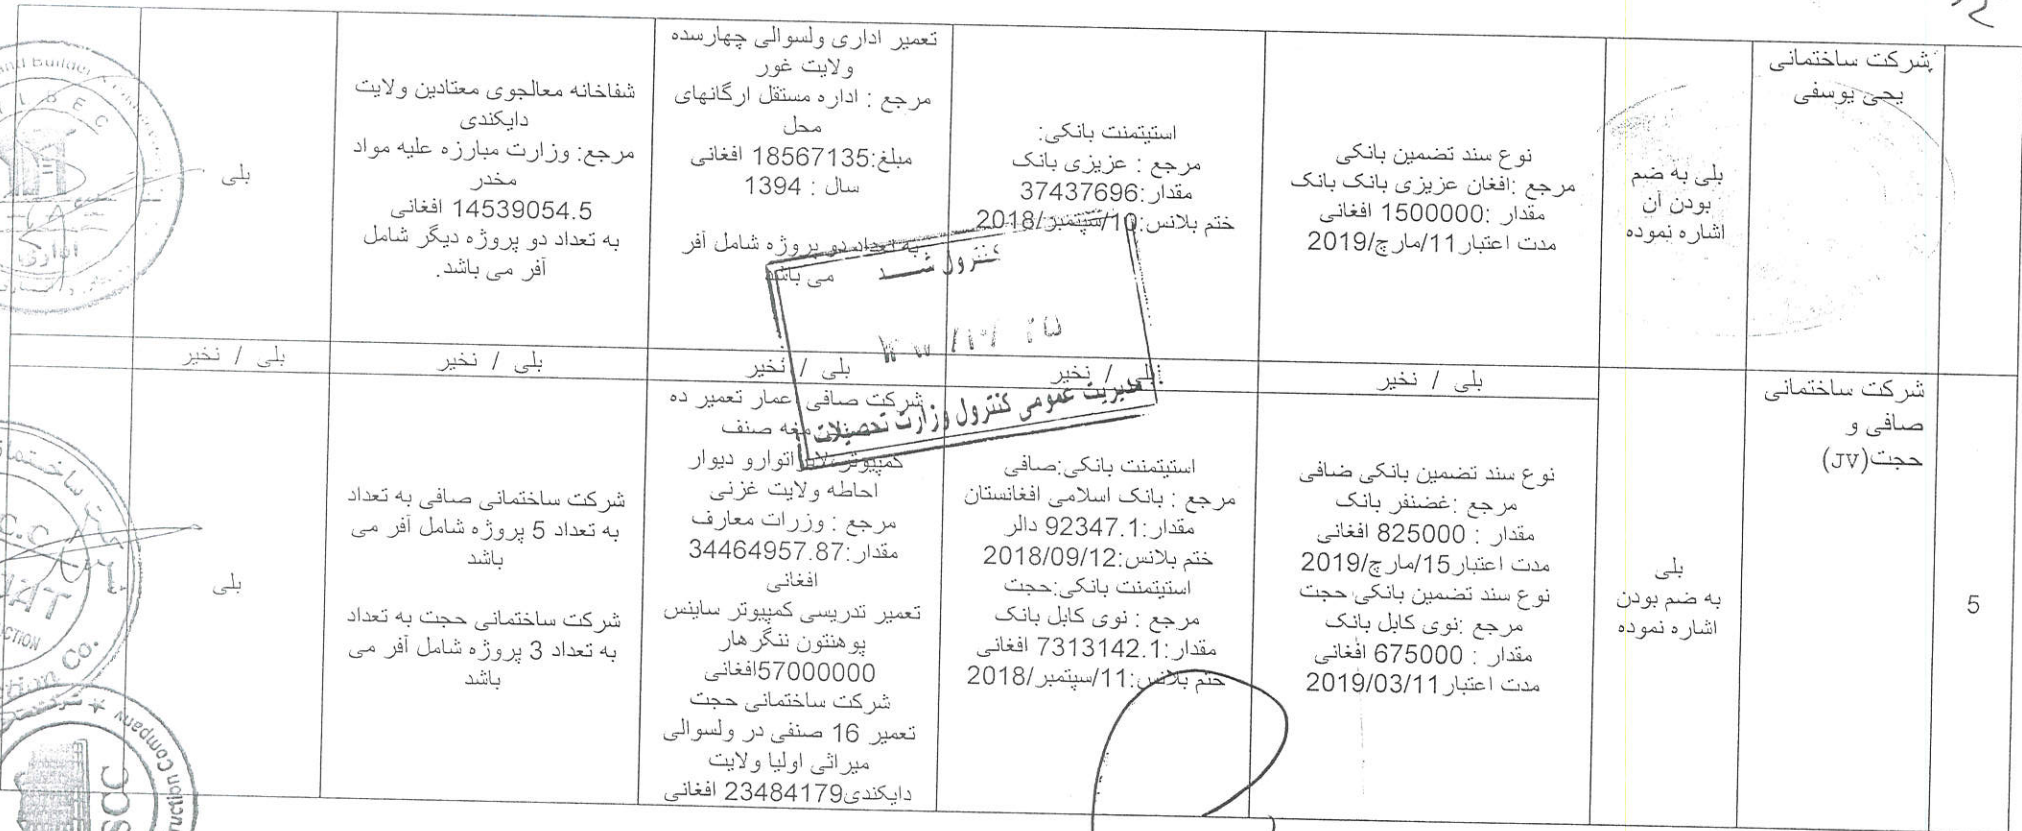 شرکت ساختمانی
یحیی یوسفی
بلی به ضم
بودن آن
اشاره نموده
نوع سند تضمین بانکی
مرجع :افغان عزیزی بانک بانک
مقدار :1500000 افغانی
مدت اعتبار11/مارچ/2019
استیتمنت بانکی:
مرجع : عزیزی بانک
مقدار:37437696
ختم بلانس:10/سپتمبر/2018
تعمیر اداری ولسوالی چهارسده
ولایت غور
مرجع : اداره مستقل ارگانهای
محل
مبلغ:18567135 افغانی
سال : 1394
به تعداد دو پروژه شامل آفر
می باشد
شفاخانه معالجوی معتادین ولایت
دایکندی
مرجع: وزارت مبارزه علیه مواد
مخدر
14539054.5 افغانی
به تعداد دو پروژه دیگر شامل
آفر می باشد.
بلی
کنترول شـــد
مدیریت عمومی کنترول وزارت تحصیلات
بلی / نخیر
بلی / نخیر
بلی / نخیر
بلی / نخیر
بلی / نخیر
5
شرکت ساختمانی
صافی و
حجت(JV)
بلی
به ضم بودن
اشاره نموده
نوع سند تضمین بانکی ضافی
مرجع :غضنفر بانک
مقدار : 825000 افغانی
مدت اعتبار15/مارچ/2019
نوع سند تضمین بانکی حجت
مرجع :نوی کابل بانک
مقدار : 675000 افغانی
مدت اعتبار2019/03/11
استیتمنت بانکی:صافی
مرجع : بانک اسلامی افغانستان
مقدار:92347.1 دالر
ختم بلانس:2018/09/12
استیتمنت بانکی:حجت
مرجع : نوی کابل بانک
مقدار:7313142.1 افغانی
ختم بلانس:11/سپتمبر/2018
شرکت صافی عمار تعمیر ده
صنف
کمپیوتر لابراتوارو دیوار
احاطه ولایت غزنی
مرجع : وزرات معارف
مقدار:34464957.87
افغانی
تعمیر تدریسی کمپیوتر ساینس
پوهنتون ننگرهار
57000000افغانی
شرکت ساختمانی حجت
تعمیر 16 صنفی در ولسوالی
میراثی اولیا ولایت
دایکندی23484179 افغانی
شرکت ساختمانی صافی به تعداد
به تعداد 5 پروژه شامل آفر می
باشد
شرکت ساختمانی حجت به تعداد
به تعداد 3 پروژه شامل آفر می
باشد
بلی